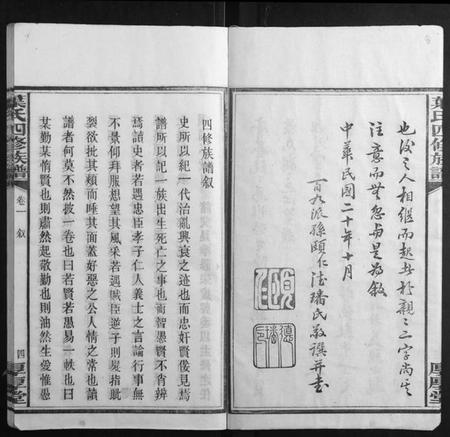 葉氏四修族譜
也後之人相繼而起者於親之二字尚其
注意而無忽焉是為敘
中華民國二十年十月
百九派孫頤仁德璠氏敬撰并書
四修族譜叙
史所以紀一代治亂興衰之迹也而忠奸賢佞見焉
譜所以記一族出生死亡之事也而智愚賢不肖辨
焉讀史者若遇忠臣孝子仁人義士之言論行事無
不景仰拜服想望其風采若遇賊臣逆子則髮指眦
裂欲批其頰而唾其面蓋好惡之公人情之常也讀
譜者何莫不然披一卷也曰若賢若愚易一帙也曰
某勤某惰賢也則肅然起敬勤也則油然生愛惟愚
葉氏四修族譜
卷一 叙
四
厚慶堂